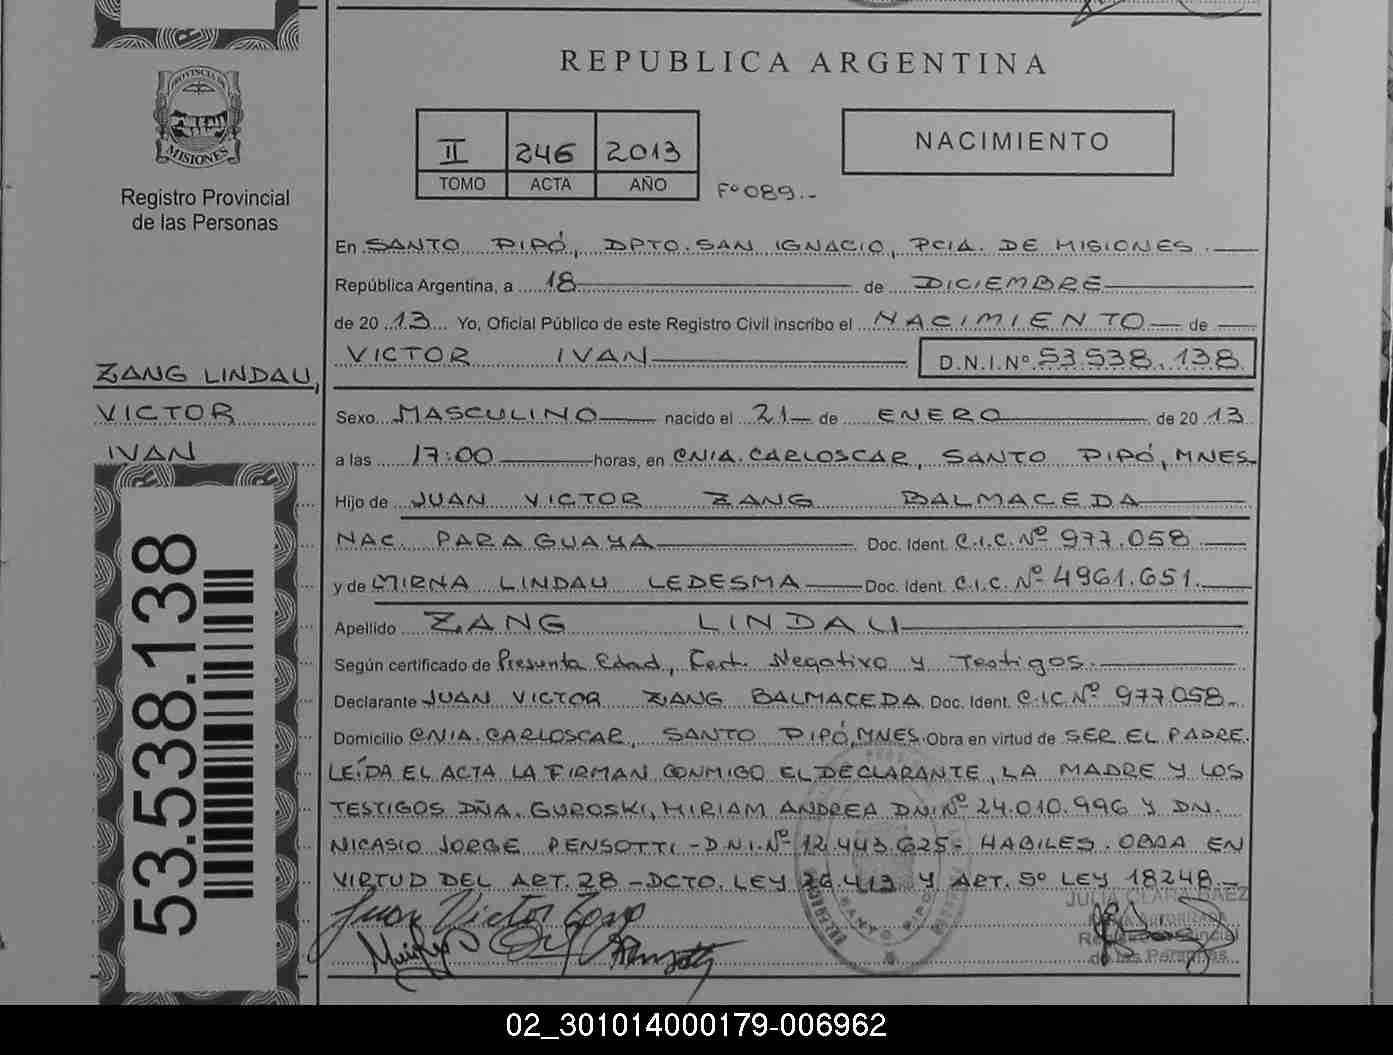 REPUBLICA ARGENTINA
PROVINCIA DE
MISIONES
Registro Provincial
de las Personas
II 246 2013
TOMO ACTA AÑO
Fº 089.-
NACIMIENTO
En SANTO PIPÓ, DPTO. SAN IGNACIO, PCIA. DE MISIONES.
República Argentina, a 18 de DICIEMBRE
de 20 13 Yo, Oficial Público de este Registro Civil inscribo el NACIMIENTO de
VICTOR IVAN D.N.I.Nº 53.538.138
ZANG LINDAU,
VICTOR
IVAN
Sexo MASCULINO nacido el 21 de ENERO de 20 13
a las 17:00 horas, en CNIA. CARLOSCAR, SANTO PIPÓ, MNES.
Hijo de JUAN VICTOR ZANG BALMACEDA
NAC. PARAGUAYA Doc. Ident. C.I.C. Nº 977.058
y de MIRNA LINDAU LEDESMA Doc. Ident. C.I.C. Nº 4961.651.
Apellido ZANG LINDAU
Según certificado de Presunta Edad, Cert. Negativo y Testigos.
Declarante JUAN VICTOR ZANG BALMACEDA Doc. Ident. C.I.C. Nº 977.058.
Domicilio CNIA. CARLOSCAR, SANTO PIPÓ, MNES. Obra en virtud de SER EL PADRE.
LEÍDA EL ACTA LA FIRMAN CONMIGO EL DECLARANTE, LA MADRE Y LOS
TESTIGOS DÑA. GUROSKI, MIRIAM ANDREA D.N.I Nº 24.010.996 Y DN.
NICASIO JORGE PENSOTTI - D.N.I. Nº 12.443.625- HABILES. OBRA EN
VIRTUD DEL ART. 28 - DCTO. LEY 26.413 Y ART. 5º LEY 18248.-
Juan Victor Zang
JULIA CLARA BAEZ
de las Personas
53.538.138
02_301014000179-006962